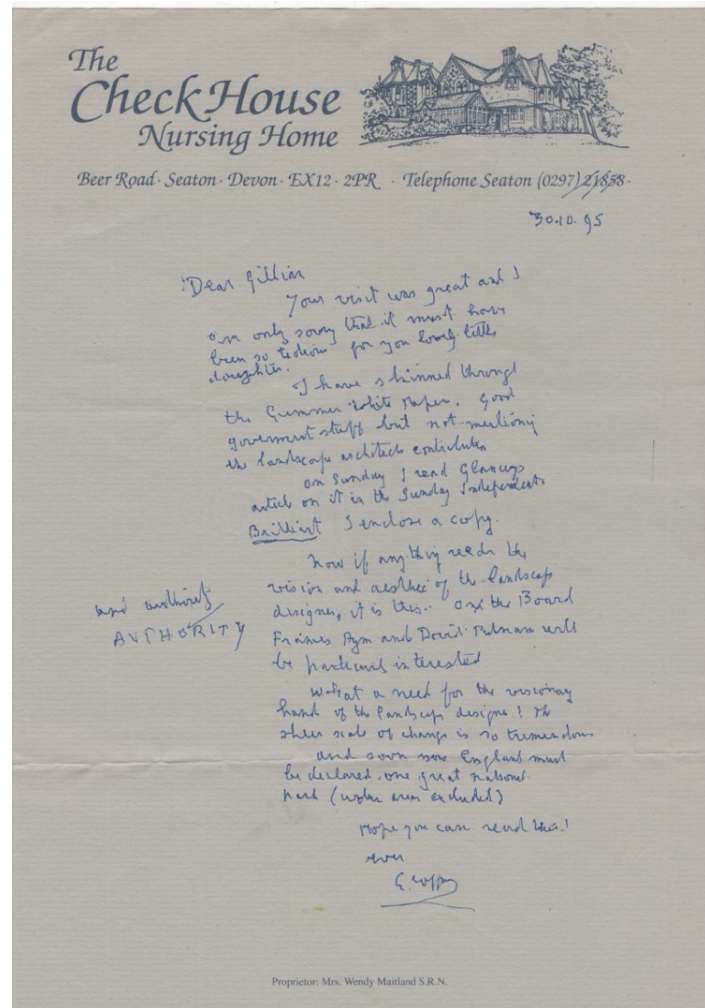 The
Check House
Nursing Home
Beer Road · Seaton · Devon · EX12 · 2PR · Telephone Seaton (0297) 21858 ·
30.10.95
Dear Gillian
Your visit was great and I
am only sorry that it must have
been so tedious for you lovely little
daughter.
I have skimmed through
the Gummer White Paper. Good
government stuff but not mentioning
the landscape architects contribution
On Sunday I read Glanceys
article on it in the Sunday Independent
Brilliant I enclose a copy.
Now if anything needs the
vision and aesthetic of the landscape
designer, it is this. On the Board
and authority
AUTHORITY
Francis Pym and David Putnam will
be particularly interested
What a need for the visionary
hand of the landscape designer! The
sheer scale of change is so tremendous
and soon now England must
be declared one great national
park (urban areas excluded)
Hope you can read this!
ever
Geoffrey
Proprietor: Mrs. Wendy Maitland S.R.N.